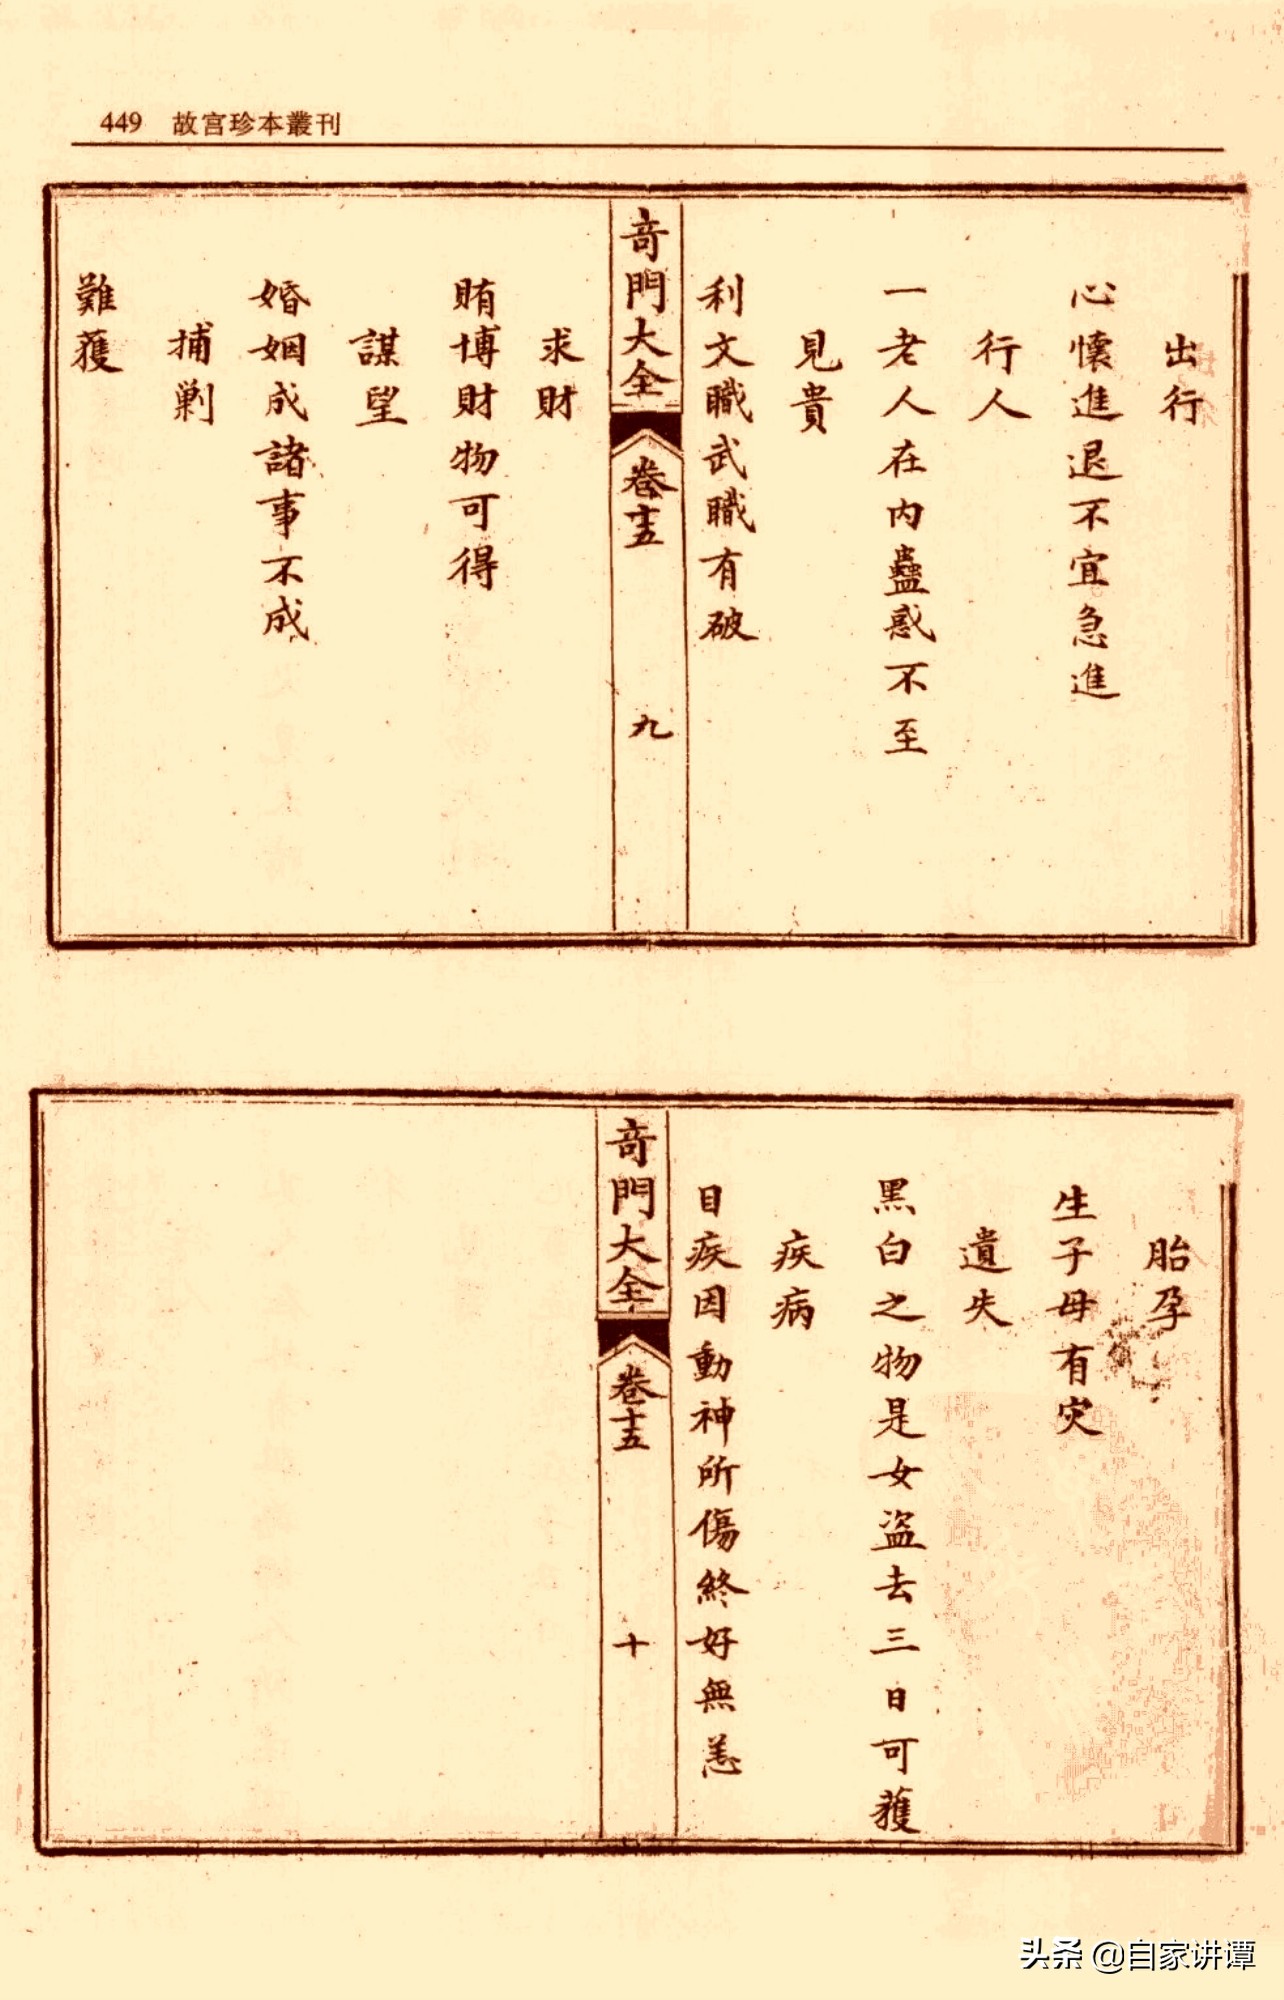 449 故宫珍本叢刊
出行
心懷進退不宜急進
行人
一老人在内蠱惑不至
見貴
利文職武職有破
奇門大全 卷十五 九
求財
賄博財物可得
謀望
婚姻成諸事不成
捕剿
難獲
胎孕
生子母有灾
遺失
黑白之物是女盜去三日可獲
疾病
目疾因動神所傷終好無恙
奇門大全 卷十五 十
头条 @自家讲谭